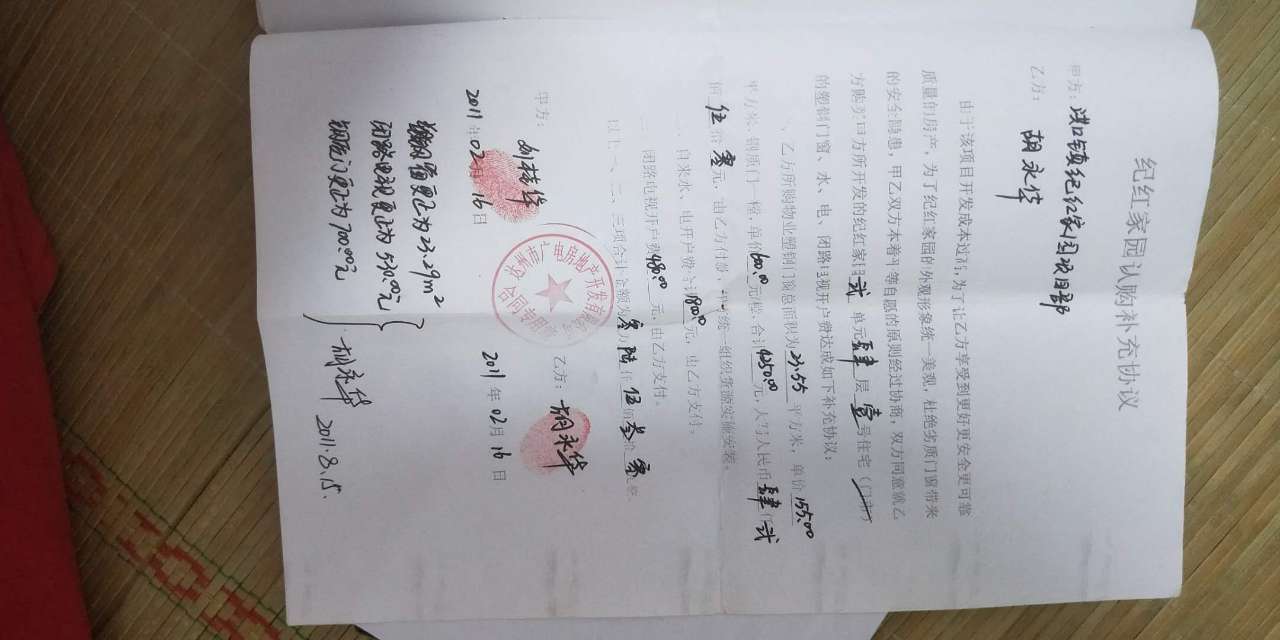 纪红家园认购补充协议
甲方：洪口镇纪红家园项目部
乙方：胡永华
由于该项目开发成本过高，为了让乙方享受到更好更安全更可靠
质量的房产，为了纪红家园的外观形象统一美观，杜绝劣质门窗带来
的安全隐患，甲乙双方本着平等自愿的原则经过协商，双方同意就乙
方购买甲方所开发的纪红家园贰单元肆层壹号住宅（门市）
的塑钢门窗、水、电、闭路电视开户费达成如下补充协议：
一、乙方所购物业塑钢门窗总面积为23.55平方米，单价155.00
元/平方米，钢质门一樘，单价600.00元/樘，合计4250.00元，大写人民币肆仟贰
佰伍拾零元，由乙方付款，甲方统一组织货源实施安装。
二、自来水、电开户费为1800.00元，由乙方支付。
三、闭路电视开户费480.00元，由乙方支付。
以上一、二、三项合计金额为零万陆仟伍佰叁拾零元整
甲方：
乙方：胡永华
2011年02月16日
2011年02月16日
达州市广电房地产开发有限公司
合同专用章
更正为23.29m²
闭路电视更正为530.00元
钢质门更正为700.00元
胡永华 2011.8.15.